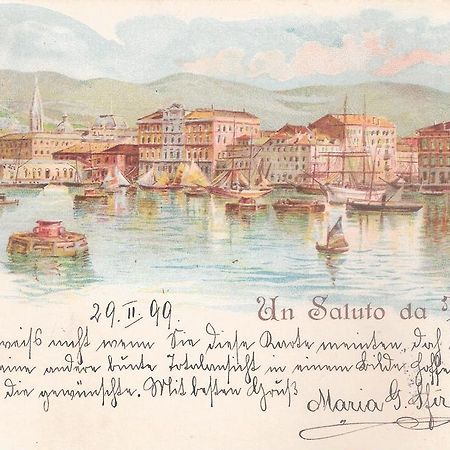 29. II. 99.
Un Saluto da
weiß nicht wenn Sie diese Karte meinten, doch
eine andere bunte Totalansicht in einem Bilde. Hoffe
die gewünschte. Mit besten Gruß
Maria G.